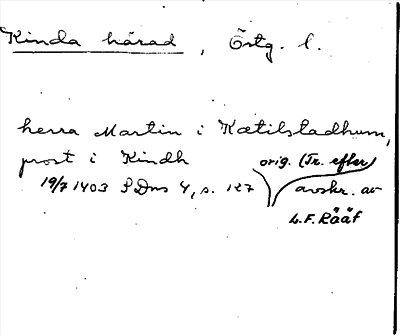 Kinda härad, Östg. l.
herra Martin i Kætilstadhum,
prost i Kindh
orig. (Tr. efter)
19/7 1403 SDns 4, s. 127
avskr. av
L.F. Rääf